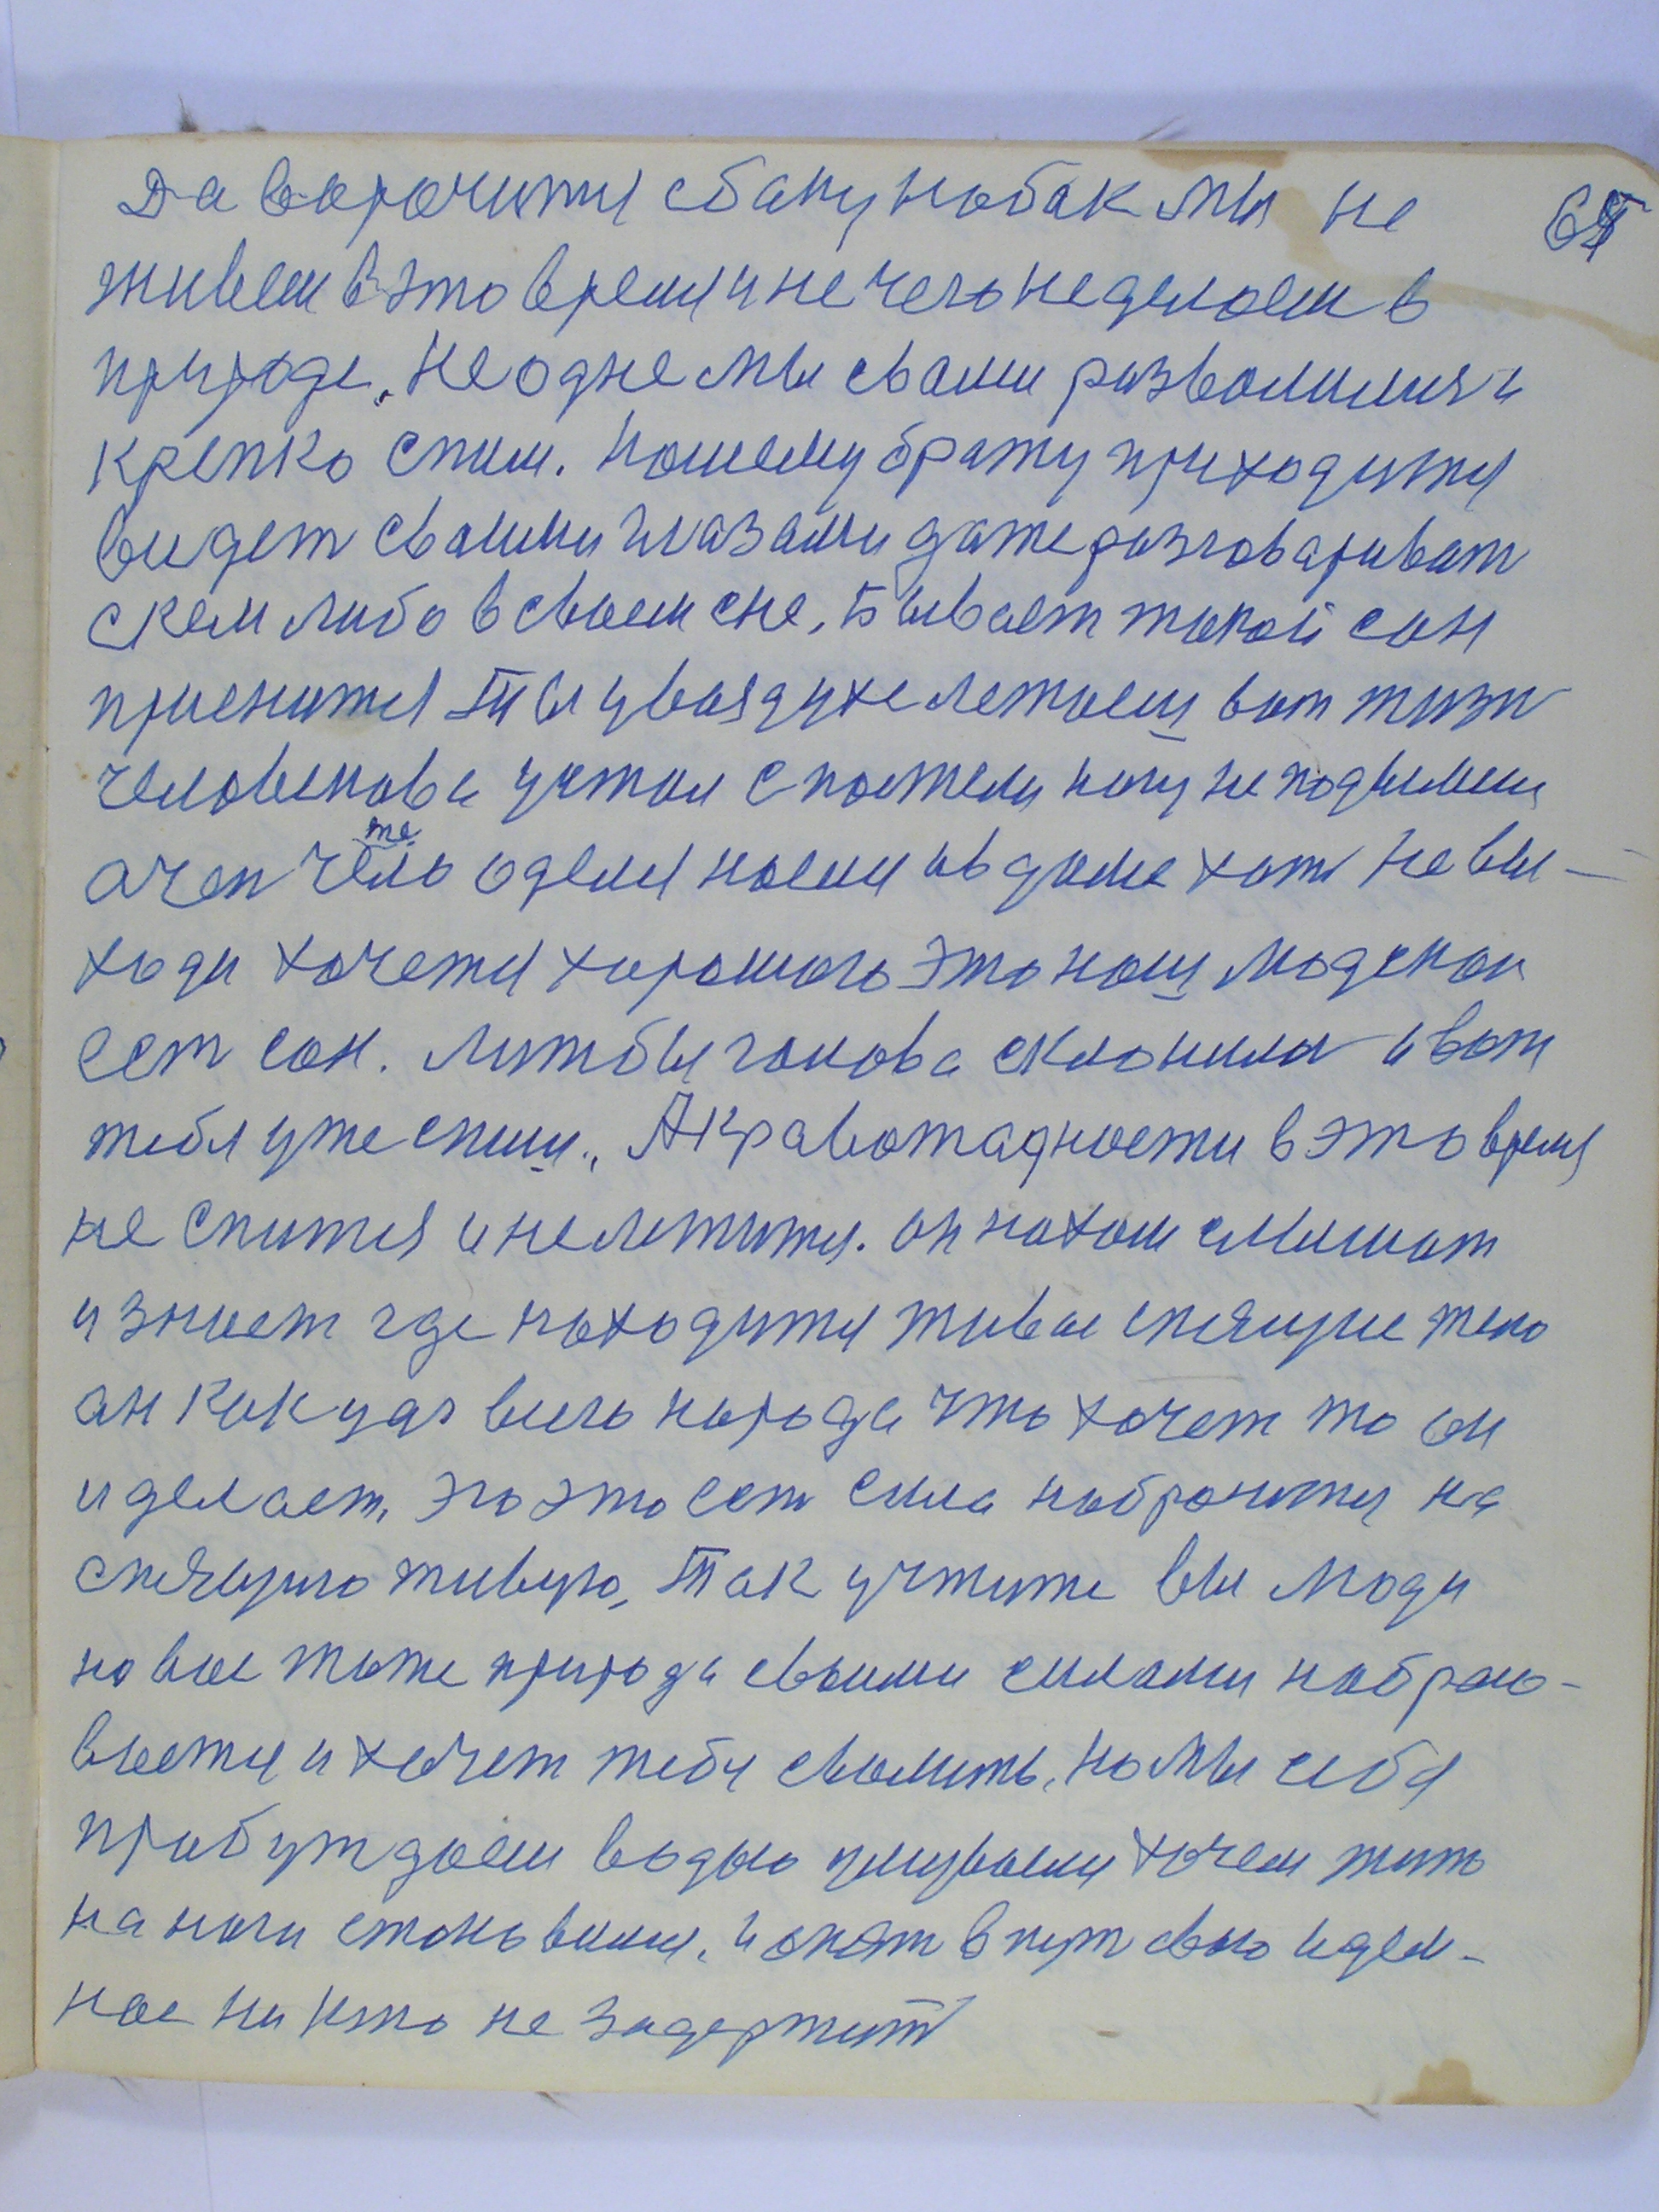 Да ворочится сбаку набак мы не
65
живем в это время и не чего не делаем в
природе. Не одне мы свами развалимся и
крепко спим. Нашему брату приходится
видет сваими глазами даже разговариват
скем либо в своем сне, Бывает такой сон
приснится Ты увоздухе летаеш вот жизн
человекова устал с постели ногу не подымеш
а чем тело оделся наелся ав доме хот не вы-
ходи хочется харошого это наш людской
ест сон. Лиш бы голова склонилас и вот
тебя уже спиш. А кравотадности в это время
не спится и не летится. он нахом слышат
и знает где находится живое спящие тело
ан как удав всего народа что хочет то он
и делает, эго это ест сила набросится на
спящую живую, Так учтите вы люди
на вас тоже природа своими силами набрасо-
вается и хочет тебя свалить, но мы себя
прабуждаем водою умываемся хочем жить
на ноги становимся, и опят в пут свою идем-
нас ни кто не задержит